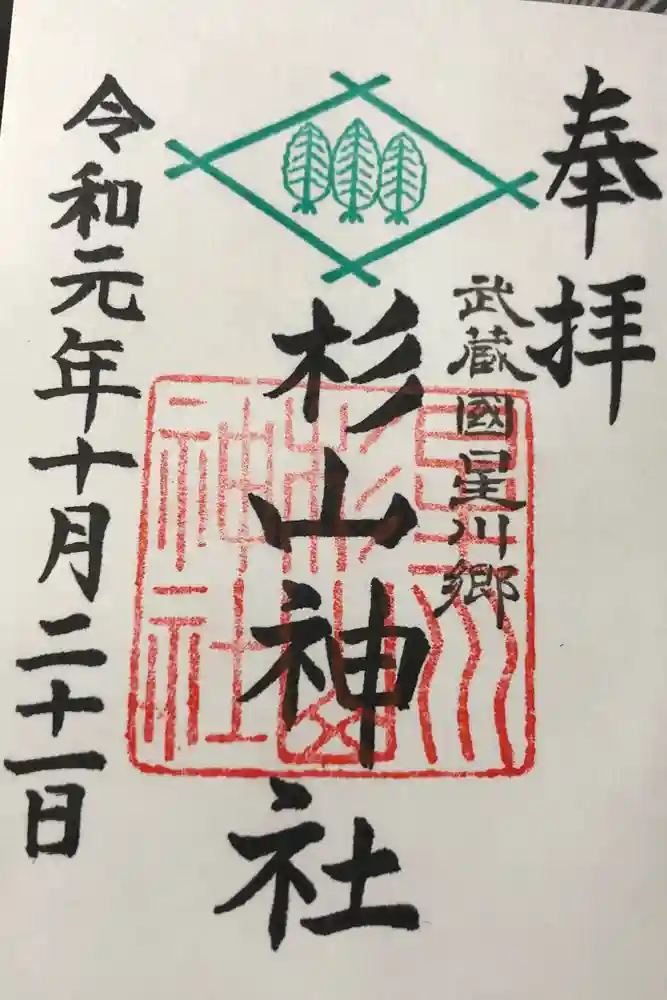 奉拝
武蔵國星川郷
杉山神社
星川
杉山
神社
令和元年十月二十一日